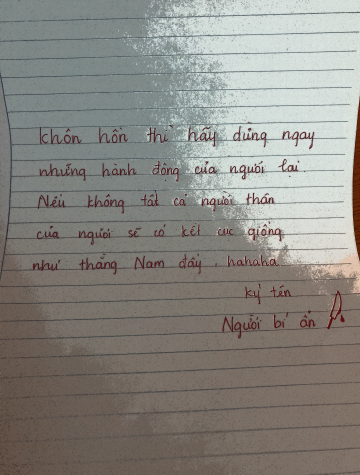 khôn hồn thì hãy dừng ngay
những hành động của người lại
Nếu không tất cả người thân
của người sẽ có kết cục giống
như thằng Nam đấy, hahaha
ký tên
Người bí ẩn